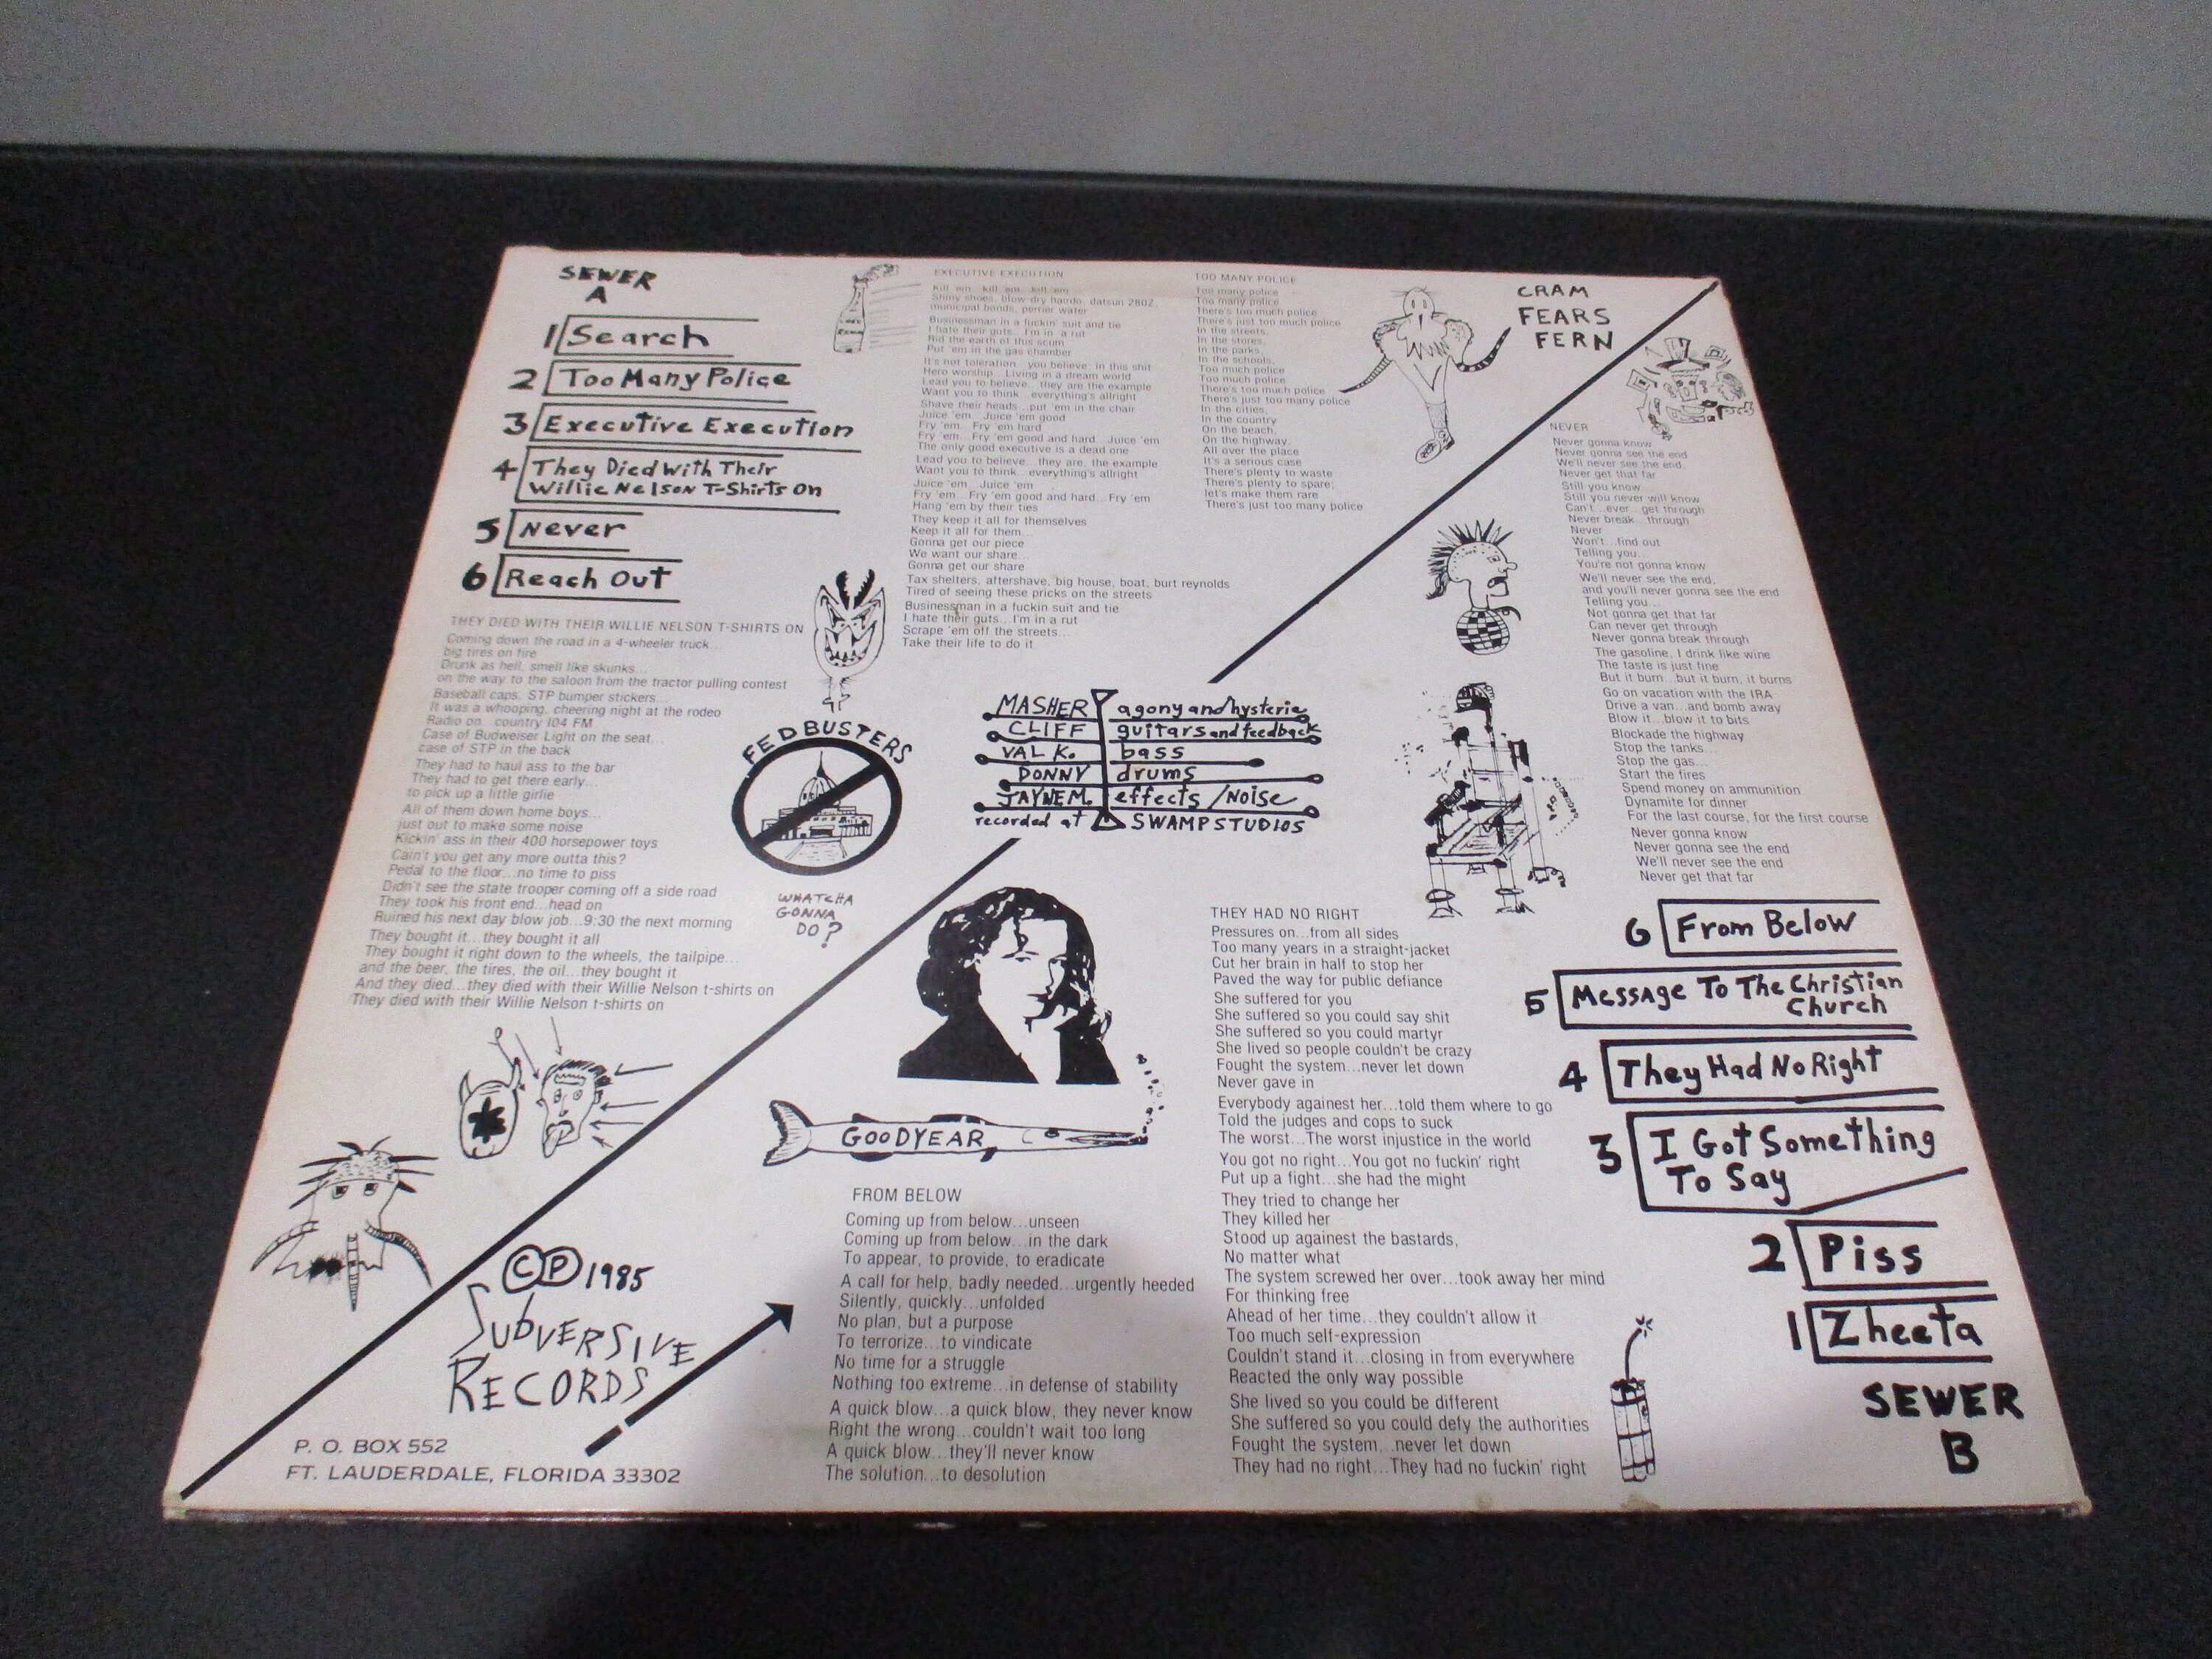 SEWER
A
1 Search
2 Too Many Police
3 Executive Execution
4 They Died With Their
Willie Nelson T-Shirts On
5 Never
6 Reach Out
THEY DIED WITH THEIR WILLIE NELSON T-SHIRTS ON
Coming down the road in a 4-wheeler truck...
big tires on fire
Drunk as hell, smell like skunks...
on the way to the saloon from the tractor pulling contest
Baseball caps, STP bumper stickers...
It was a whooping, cheering night at the rodeo
Radio on...country 104 FM
Case of Budweiser Light on the seat...
case of STP in the back
They had to haul ass to the bar
They had to get there early...
to pick up a little girlie
All of them down home boys...
just out to make some noise
Kickin' ass in their 400 horsepower toys
Cain't you get any more outta this?
Pedal to the floor...no time to piss
Didn't see the state trooper coming off a side road
They took his front end...head on
Ruined his next day blow job...9:30 the next morning
They bought it...they bought it all
They bought it right down to the wheels, the tailpipe...
and the beer, the tires, the oil...they bought it
And they died...they died with their Willie Nelson t-shirts on
They died with their Willie Nelson t-shirts on
EXECUTIVE EXECUTION
Kill 'em...kill 'em...kill 'em
Shiny shoes, blow-dry hairdo, datsun 280Z
municipal bonds, perrier water
Businessman in a fuckin' suit and tie
I hate their guts...I'm in a rut
Rid the earth of this scum
Put 'em in the gas chamber
It's not toleration...you believe in this shit
Hero worship...Living in a dream world
Lead you to believe...they are the example
Want you to think...everything's allright
Shave their heads...put 'em in the chair
Juice 'em...Juice 'em good
Fry 'em...Fry 'em hard
Fry 'em...Fry 'em good and hard...Juice 'em
The only good executive is a dead one
Lead you to believe...they are, the example
Want you to think...everything's allright
Juice 'em...Juice 'em
Fry 'em...Fry 'em good and hard...Fry 'em
Hang 'em by their ties
They keep it all for themselves
Keep it all for them...
Gonna get our piece
We want our share...
Gonna get our share
Tax shelters, aftershave, big house, boat, burt reynolds
Tired of seeing these pricks on the streets
Businessman in a fuckin suit and tie
I hate their guts...I'm in a rut
Scrape 'em off the streets...
Take their life to do it
TOO MANY POLICE
Too many police
Too many police
There's too much police
There's just too much police
In the streets,
In the stores,
In the parks,
In the schools,
Too much police
Too many police
There's too much police
There's just too many police
In the cities,
In the country
On the beach,
On the highway,
All over the place
It's a serious case
There's plenty to waste
There's plenty to spare;
let's make them rare
There's just too many police
CRAM
FEARS
FERN
FEDBUSTERS
WHATCHA
GONNA
DO?
MASHER agony and hysteria
CLIFF guitars and feedback
VAL K. bass
DONNY drums
JAYNE M. effects/noise
recorded at SWAMP STUDIOS
NEVER
Never gonna know
Never gonna see the end
We'll never see the end,
Never get that far
Still you know...
Still you never will know
Can't...ever...get through
Never break...through
Never
Won't...find out
Telling you...
You're not gonna know
We'll never see the end,
and you'll never gonna see the end
Telling you...
Not gonna get that far
Can never get through
Never gonna break through
The gasoline, I drink like wine
The taste is just fine
But it burn...but it burn, it burns
Go on vacation with the IRA
Drive a van...and bomb away
Blow it...blow it to bits
Blockade the highway
Stop the tanks...
Stop the gas...
Start the fires
Spend money on ammunition
Dynamite for dinner
For the last course, for the first course
Never gonna know
Never gonna see the end
We'll never see the end
Never get that far
GOODYEAR
THEY HAD NO RIGHT
Pressures on...from all sides
Too many years in a straight-jacket
Cut her brain in half to stop her
Paved the way for public defiance
She suffered for you
She suffered so you could say shit
She suffered so you could martyr
She lived so people couldn't be crazy
Fought the system...never let down
Never gave in
Everybody against her...told them where to go
Told the judges and cops to suck
The worst...The worst injustice in the world
You got no right...You got no fuckin' right
Put up a fight...she had the might
They tried to change her
They killed her
Stood up against the bastards,
No matter what
The system screwed her over...took away her mind
For thinking free
Ahead of her time...they couldn't allow it
Too much self-expression
Couldn't stand it...closing in from everywhere
Reacted the only way possible
She lived so you could be different
She suffered so you could defy the authorities
Fought the system...never let down
They had no right...They had no fuckin' right
FROM BELOW
Coming up from below...unseen
Coming up from below...in the dark
To appear, to provide, to eradicate
A call for help, badly needed...urgently heeded
Silently, quickly...unfolded
No plan, but a purpose
To terrorize...to vindicate
No time for a struggle
Nothing too extreme...in defense of stability
A quick blow...a quick blow, they never know
Right the wrong...couldn't wait too long
A quick blow...they'll never know
The solution...to desolution
6 From Below
5 Message To The Christian
Church
4 They Had No Right
3 I Got Something
To Say
2 Piss
1 Zheeta
SEWER
B
©℗ 1985
SUBVERSIVE
RECORDS
P. O. BOX 552
FT. LAUDERDALE, FLORIDA 33302